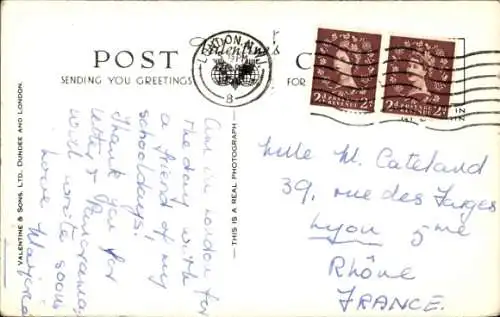 POST C
Valentine's
SENDING YOU GREETINGS FOR
LONDON N.W.
8
2D POSTAGE REVENUE 2D
2D POSTAGE REVENUE 2D
VALENTINE & SONS, LTD., DUNDEE AND LONDON.
THIS IS A REAL PHOTOGRAPH
Am in London for
the day with
a friend of my
schooldays.
Thank you for
letter & Panorama,
will write soon
love Marjorie
Mlle M. Cateland
39, rue des Farges
Lyon 5me
Rhône
FRANCE.